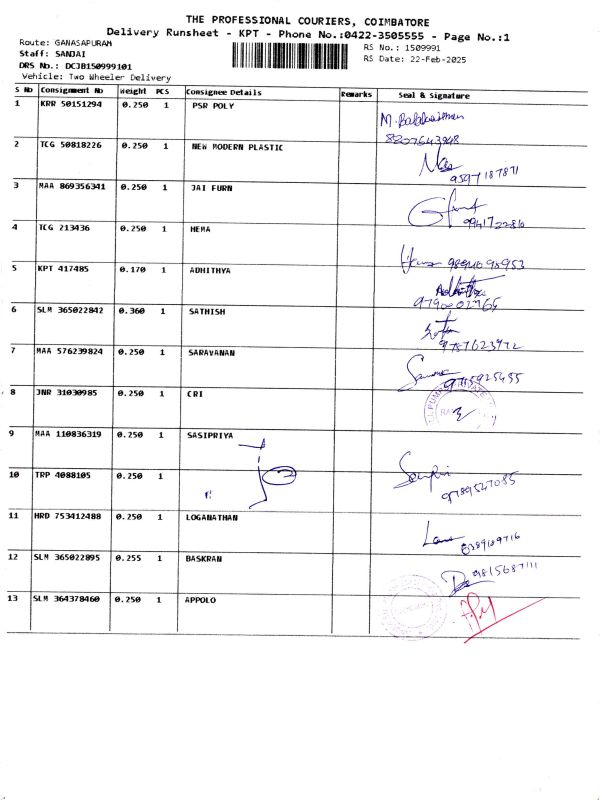 THE PROFESSIONAL COURIERS, COIMBATORE
Delivery Runsheet - KPT - Phone No.:0422-3505555 - Page No.:1
Route: GANASAPURAM
RS No.: 1509991
Staff: SANJAI
RS Date: 22-Feb-2025
DRS No.: DCJB150999101
Vehicle: Two Wheeler Delivery
S No Consignment No Weight PCS Consignee Details Remarks Seal & Signature
1 KRR 50151294 0.250 1 PSR POLY
8207643948
2 TCG 50818226 0.250 1 NEW MODERN PLASTIC
9597187871
3 MAA 869356341 0.250 1 JAI FURN
4 TCG 213436 0.250 1 HEMA
5 KPT 417485 0.170 1 ADHITHYA
6 SLM 365022842 0.360 1 SATHISH
7 MAA 576239824 0.250 1 SARAVANAN
8 JNR 31030985 0.250 1 CRI
9 MAA 110836319 0.250 1 SASIPRIYA
10 TRP 4088105 0.250 1
9789547085
11 HRD 753412488 0.250 1 LOGANATHAN
12 SLM 365022895 0.255 1 BASKRAN
13 SLM 364378460 0.250 1 APPOLO